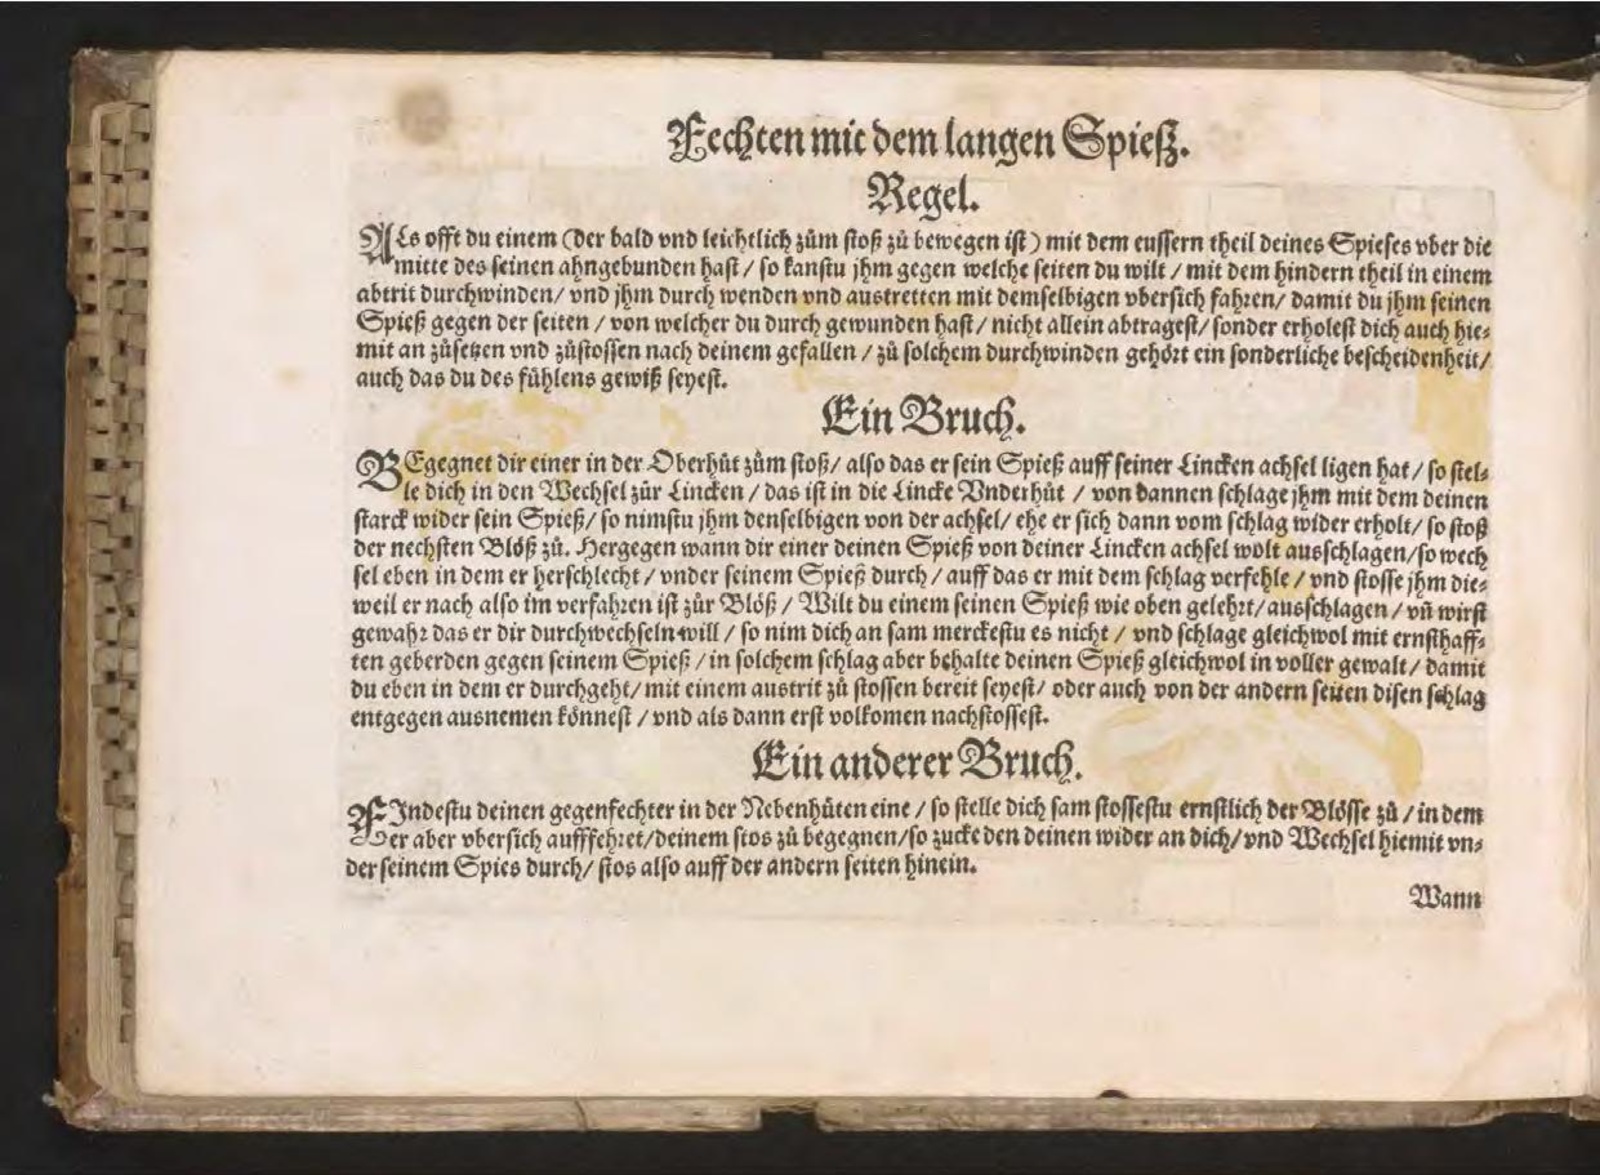 Fechten mit dem langen Spieß.
Regel.
ALs offt du einem (der bald vnd leichtlich zům stoß zů bewegen ist) mit dem eussern theil deines Spieses vber die
mitte des seinen ahngebunden hast / so kanstu jhm gegen welche seiten du wilt / mit dem hindern theil in einem
abtrit durchwinden / vnd jhm durch wenden vnd austretten mit demselbigen vbersich fahren / damit du jhm seinen
Spieß gegen der seiten / von welcher du durch gewunden hast / nicht allein abtragest / sonder erholest dich auch hie⸗
mit an zůsetzen vnd zůstossen nach deinem gefallen / zů solchem durchwinden gehört ein sonderliche bescheidenheit /
auch das du des fühlens gewiß seyest.
Ein Bruch.
BEgegnet dir einer in der Oberhůt zům stoß / also das er sein Spieß auff seiner Lincken achsel ligen hat / so stel⸗
le dich in den Wechsel zůr Lincken / das ist in die Lincke Vnderhůt / von dannen schlage jhm mit dem deinen
starck wider sein Spieß / so nimstu jhm denselbigen von der achsel / ehe er sich dann vom schlag wider erholt / so stoß
der nechsten Blöß zů. Hergegen wann dir einer deinen Spieß von deiner Lincken achsel wolt ausschlagen / so wech
sel eben in dem er herschlecht / vnder seinem Spieß durch / auff das er mit dem schlag verfehle / vnd stosse jhm die⸗
weil er nach also im verfahren ist zůr Blöß / Wilt du einem seinen Spieß wie oben gelehrt / ausschlagen / vñ wirst
gewahr das er dir durchwechseln will / so nim dich an sam merckestu es nicht / vnd schlage gleichwol mit ernsthaff⸗
ten geberden gegen seinem Spieß / in solchem schlag aber behalte deinen Spieß gleichwol in voller gewalt / damit
du eben in dem er durchgeht / mit einem austrit zů stossen bereit seyest / oder auch von der andern seiten disen schlag
entgegen ausnemen könnest / vnd als dann erst volkomen nachstossest.
Ein anderer Bruch.
FIndestu deinen gegenfechter in der Nebenhůten eine / so stelle dich sam stossestu ernstlich der Blösse zů / in dem
Er aber vbersich aufffehret / deinem stos zů begegnen / so zucke den deinen wider an dich / vnd Wechsel hiemit vn⸗
der seinem Spies durch / stos also auff der andern seiten hinein.
Wann